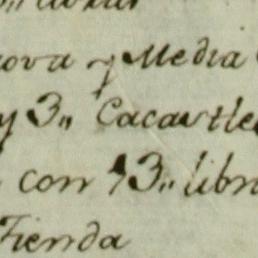 ova y Media
y 3" Cacastle
con 13" libr
Tienda